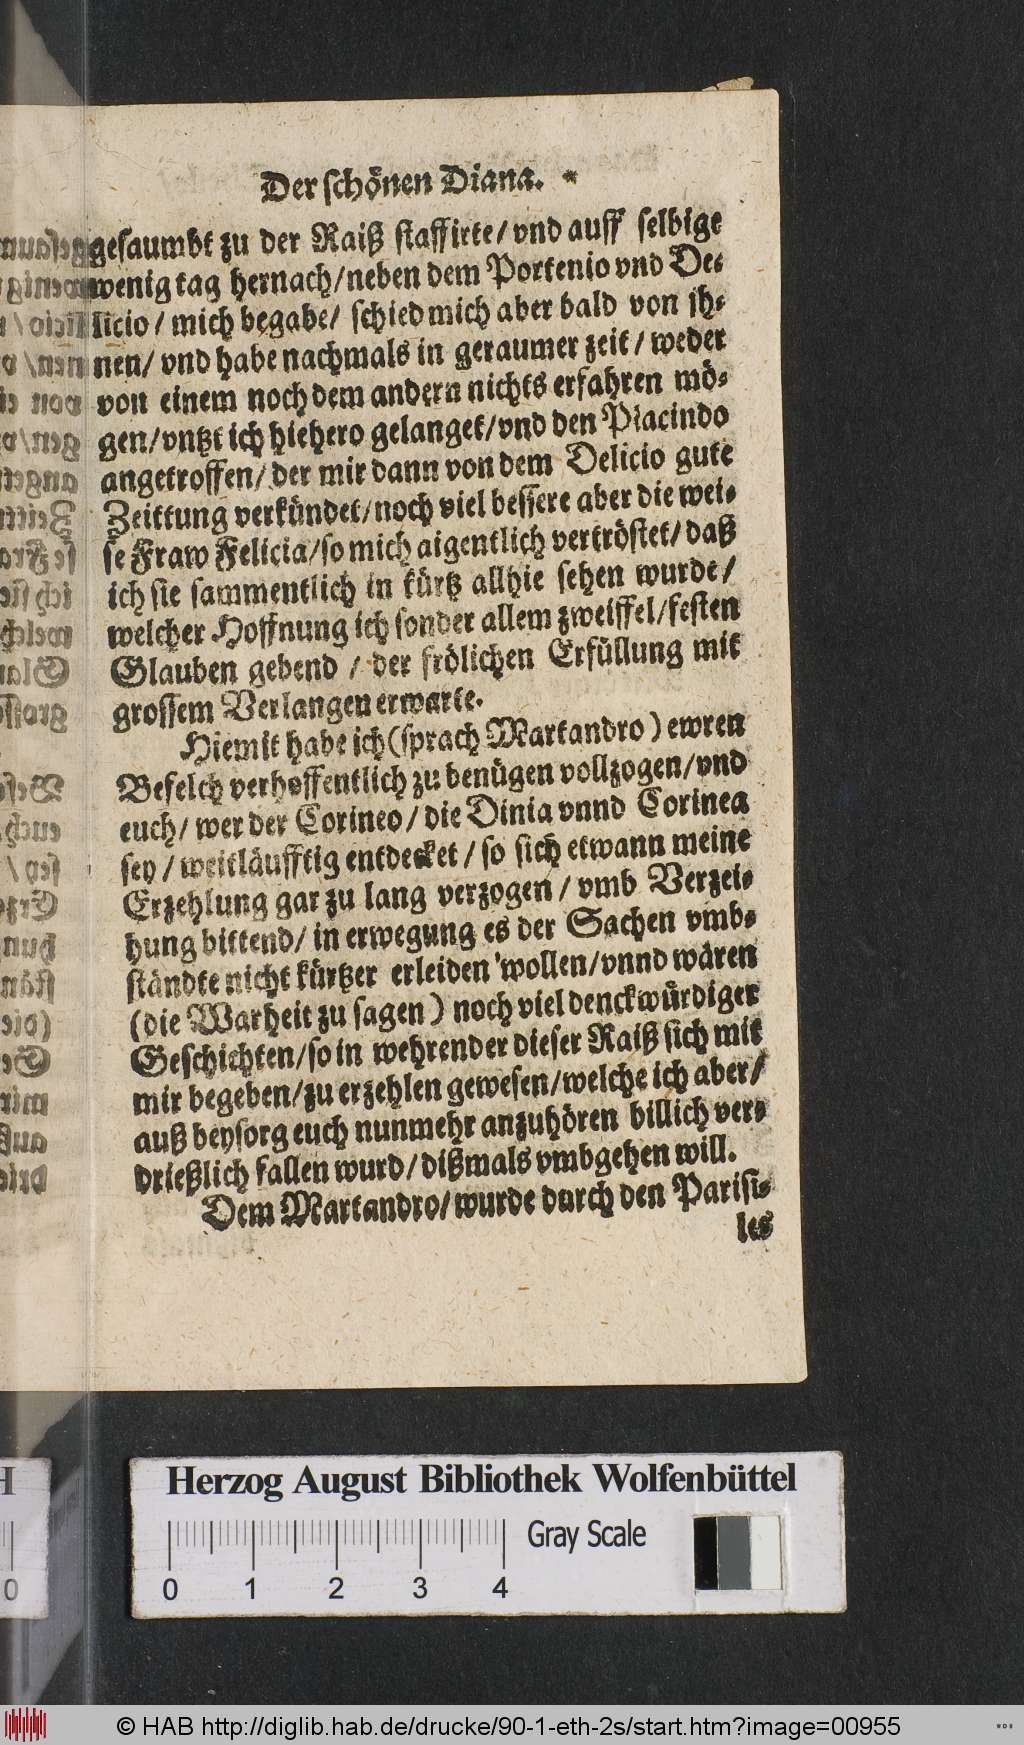 Der schönen Diana. *
gesaumbt zu der Raiß staffirte/ vnd auff selbige
wenig tag hernach/ neben dem Portenio vnd De-
licio/ mich begabe/ schied mich aber bald von jh-
nen/ vnd habe nachmals in geraumer zeit/ weder
von einem noch dem andern nichts erfahren mö-
gen/ vntzt ich hiehero gelanget/ vnd den Placindo
angetroffen/ der mir dann von dem Delicio gute
Zeittung verkündet/ noch viel bessere aber die wei-
se Fraw Felicia/ so mich aigentlich vertröstet/ daß
ich sie sammentlich in kürtz allhie sehen wurde/
welcher Hoffnung ich sonder allem zweiffel/ festen
Glauben gebend/ der frölichen Erfüllung mit
grossem Verlangen erwarte.
Hiemit habe ich (sprach Martandro) ewren
Befelch verhoffentlich zu benügen vollzogen/ vnd
euch/ wer der Corineo/ die Dinia vnnd Corinea
sey/ weitläufftig entdecket/ so sich etwann meine
Erzehlung gar zu lang verzogen/ vmb Verzei-
hung bittend/ in erwegung es der Sachen vmb-
ständte nicht kürtzer erleiden wollen/ vnnd wären
(die Warheit zu sagen) noch viel denckwürdiger
Geschichten/ so in wehrender dieser Raiß sich mit
mir begeben/ zu erzehlen gewesen/ welche ich aber/
auß beysorg euch nunmehr anzuhören billich ver-
drießlich fallen wurd/ dißmals vmbgehen will.
Dem Martandro/ wurde durch den Parisi-
les
Herzog August Bibliothek Wolfenbüttel
Gray Scale
0 1 2 3 4
© HAB http://diglib.hab.de/drucke/90-1-eth-2s/start.htm?image=00955